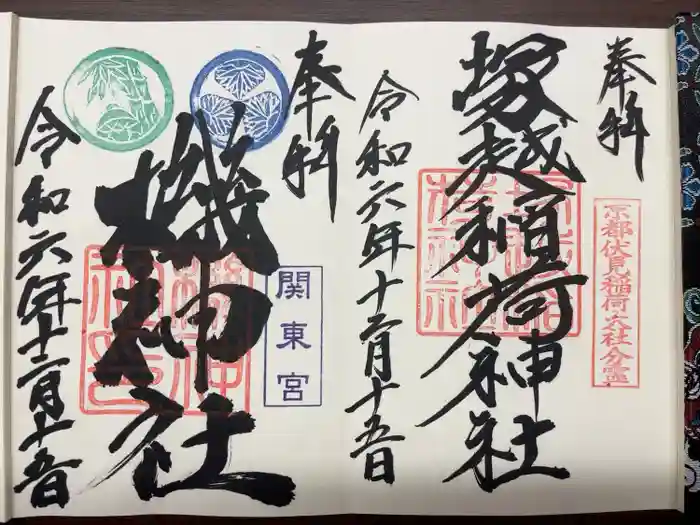 奉拝
京都伏見稲荷大社分霊
塚越稲荷神社
令和六年十二月十五日
奉拝
関東宮
機神社
令和六年十二月十五日